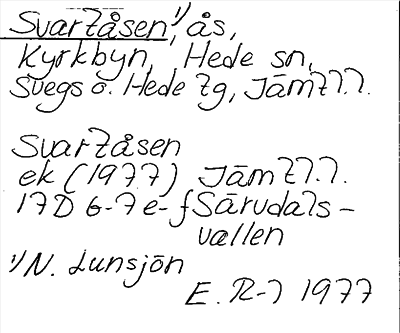 Svartåsen, 1) ås,
Kyrkbyn, Hede sn,
Svegs o. Hede tg, Jämtl.
Svartåsen
ek (1977) Jämtl.
17D 6-7 e-f Särvdals-
vallen
1) N. Lunsjön
E. R-n 1977